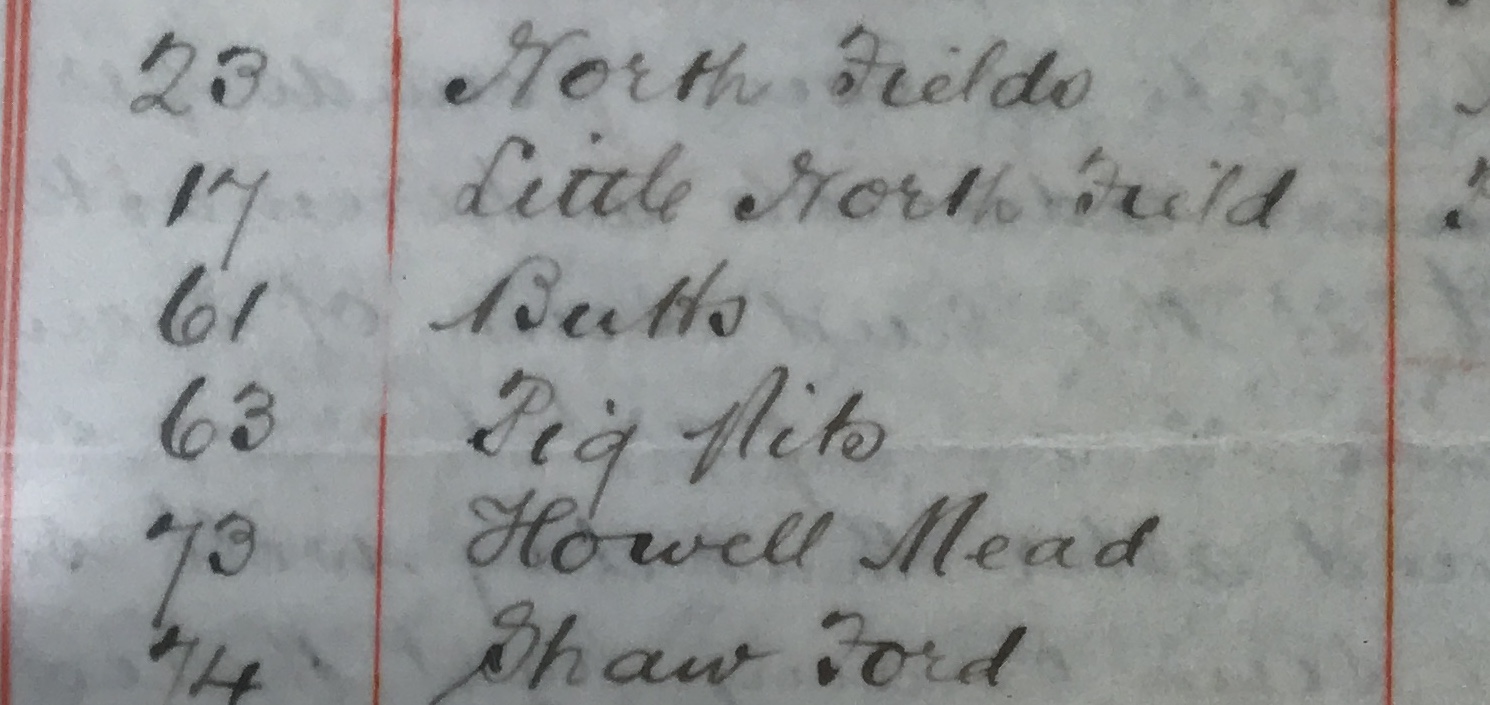 23 North Fields
17 Little North Field
61 Butts
63 Pig Pits
73 Howell Mead
74 Shaw Ford